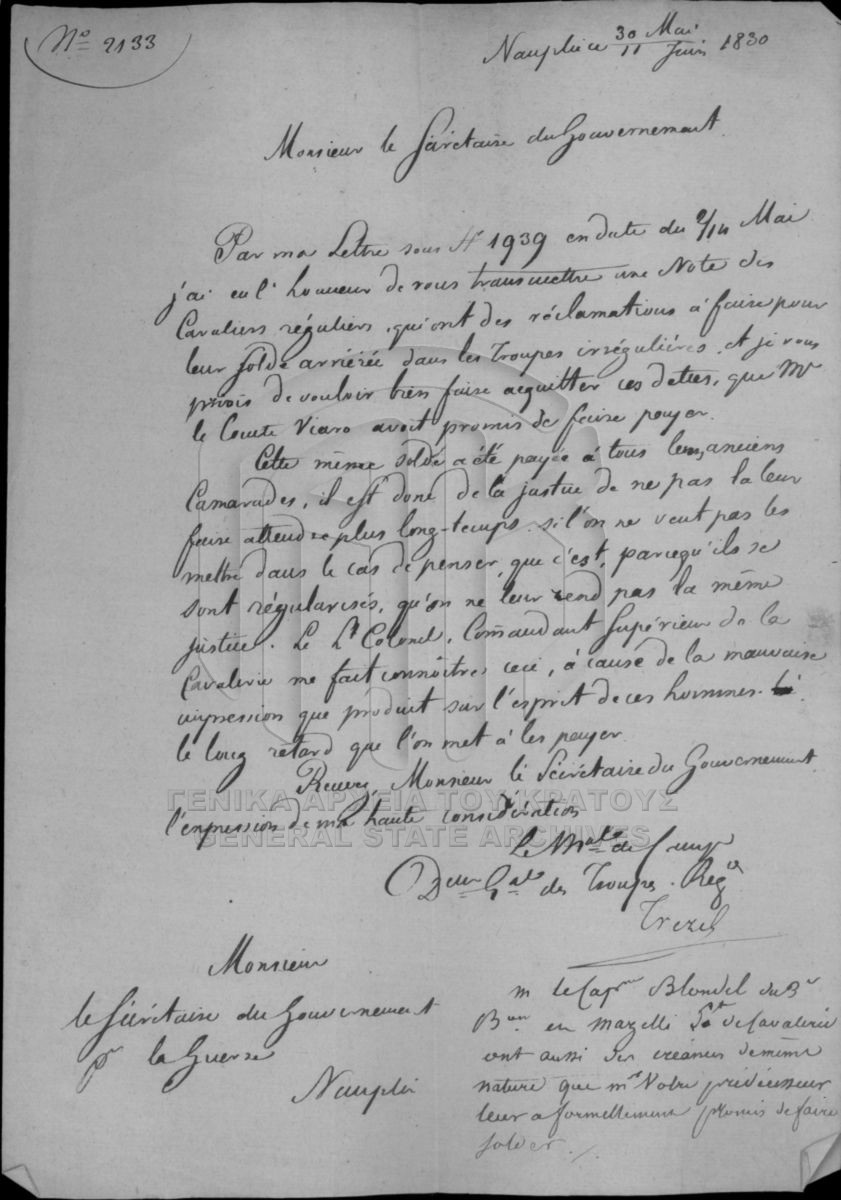 Nº 2133
Nauplie ce 30 Mai / 11 Juin 1830
Monsieur le Sécrétaire du Gouvernement.
Par ma Lettre sous Nº 1939 en date du 2/14 Mai
j'ai eu l'honneur de vous transmettre une Note des
Cavaliers réguliers, qui ont des réclamations à faire pour
leur solde arriérée dans les Troupes irrégulières, et je vous
priois de vouloir bien faire acquitter ces dettes, que Mr
le Comte Viaro avoit promis de faire payer.
Cette même solde a été payée à tous leurs anciens
Camarades, il est donc de la justice de ne pas la leur
faire attendre plus long-temps si l'on ne veut pas les
mettre dans le cas de penser, que c'est, parcequ'ils se
sont régularisés, qu'on ne leur rend pas la même
justice. Le Lt Colonel, Commandant Supérieur de la
Cavalerie me fait connoître ceci, à cause de la mauvaise
impression que produit sur l'esprit de ces hommes
le long retard que l'on met à les payer.
Recevez, Monsieur le Sécrétaire du Gouvernement
l'expression de ma haute considération
ΓΕΝΙΚΑ ΑΡΧΕΙΑ ΤΟΥ ΚΡΑΤΟΥΣ
GENERAL STATE ARCHIVES
Le Mal de Camp
Deur Gal des Troupes Reg
Trezel
Monsieur
le Sécrétaire du Gouvernement
pr la Guerre
Nauplie
m le Capne Blondel du 3e
Bon en Mazelli Lt de Cavalerie
ont aussi des créances de même
nature que mr Votre prédécesseur
leur a formellement promis de faire
solder.